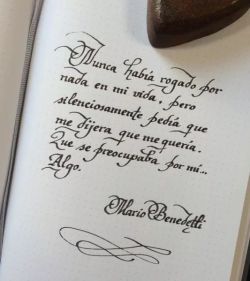 Nunca había rogado por
nada en mi vida, pero
silenciosamente pedía que
me dijera que me quería.
Que se preocupaba por mí...
Algo.
Mario Benedetti